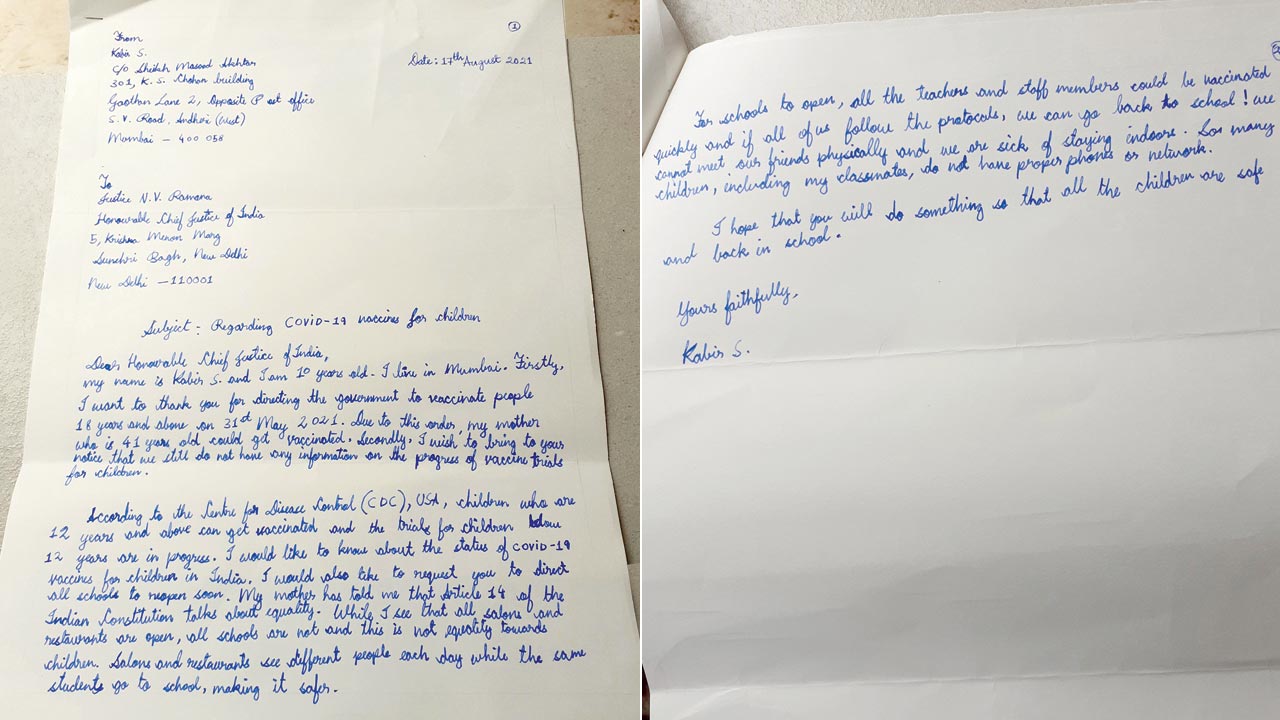 ①
From
Kabir S.
C/O Sheikh Masood Akhtar
301, K.S. Chohan building
Gaothan Lane 2, Opposite P ost office
S.V. Road, Andheri (West)
Mumbai – 400 058
Date: 17th August 2021
To
Justice N.V. Ramana
Honourable Chief Justice of India
5, Krishna Menon Marg
Sunehri Bagh, New Delhi
New Delhi – 110001
Subject: Regarding COVID-19 vaccines for children
Dear Honourable Chief Justice of India,
my name is Kabir S. and I am 10 years old. I live in Mumbai. Firstly,
I want to thank you for directing the government to vaccinate people
18 years and above on 31st May 2021. Due to this order, my mother
who is 41 years old could get vaccinated. Secondly, I wish to bring to your
notice that we still do not have any information on the progress of vaccine trials
for children.
According to the Centre for Disease Control (CDC), USA, children who are
12 years and above can get vaccinated and the trials for children below
12 years are in progress. I would like to know about the status of COVID-19
vaccines for children in India. I would also like to request you to direct
all schools to reopen soon. My mother has told me that Article 14 of the
Indian Constitution talks about equality. While I see that all salons and
restaurants are open, all schools are not and this is not equality towards
children. Salons and restaurants see different people each day while the same
students go to school, making it safer.
For schools to open, all the teachers and staff members could be vaccinated
quickly and if all of us follow the protocols, we can go back to school! We
cannot meet our friends physically and we are sick of staying indoors. So many
children, including my classmates, do not have proper phones or network.
I hope that you will do something so that all the children are safe
and back in school.
Yours faithfully,
Kabir S.